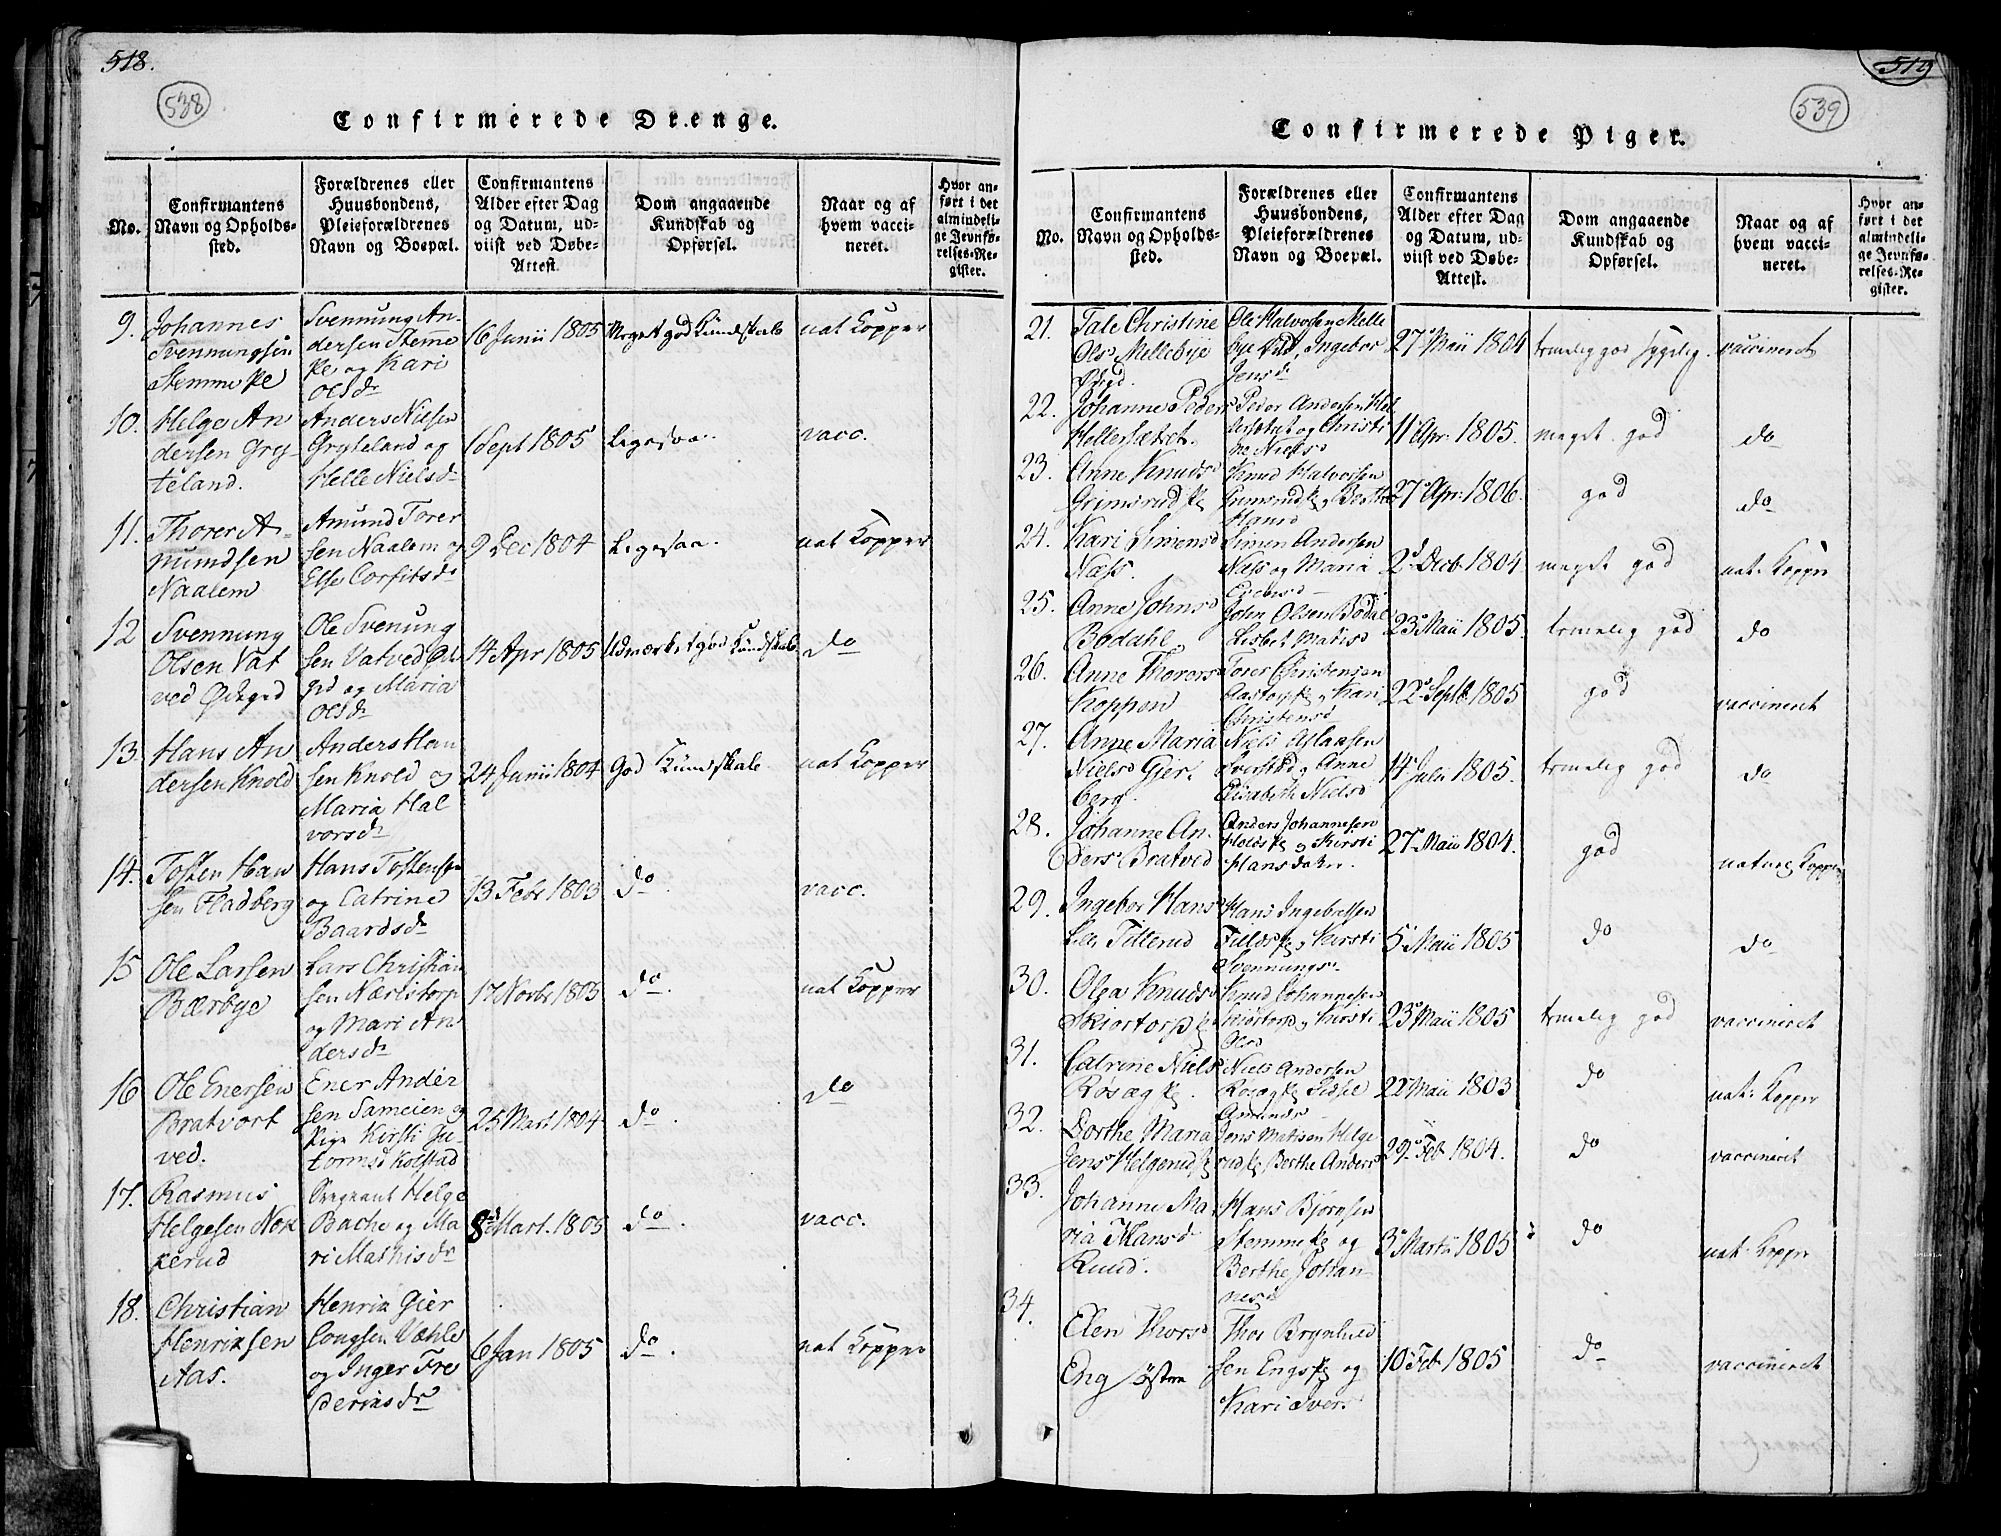 518.
538
Confirmerede Drenge.
No.
Confirmantens
Navn og Opholds-
sted.
Forældrenes eller
Huusbondens,
Pleieforældrenes
Navn og Boepæl.
Confirmantens
Alder efter Dag
og Datum, ud-
viist ved Døbe-
Attest.
Dom angaaende
Kundskab og
Opførsel.
Naar og af
hvem vacci-
neret.
Hvor an-
ført i det
almindeli-
ge Jevnfø-
relses-Re-
gister.
9.
Johannes
Svennungsen
Stemme
Svennung An-
dersen Stemme
og Kari
Olsdr
16 Junii 1805
Meget god Kundskab
nat Kopper
10.
Helge An
dersen Gry-
teland.
Anders Nielsen
Gryteland og
Helle Nielsdr
1 Sept 1805
Ligesaa.
vacc.
11.
Thorer A-
mundsen
Naalem
Amund Torer
sen Naalem og
Else Corfitsdr
9 Dec 1804
Ligesaa.
nat Kopper
12
Svennung
Olsen Vat
ved
Ole Svenung
sen Vatved
og Maria
Olsdr
14 Apr 1805
Udmærket god Kundskab
do
13.
Hans An
dersen Knold
Anders Han
sen Knold og
Maria Hal
vorsdr
24 Junii 1804
God Kundskab
nat Kopper
14.
Tosten Han
sen Fladberg
Hans Tostensen
og Catrine
Baardsdr
13 Febr 1803
do.
vacc.
15
Ole Larsen
Bærbye
Lars Christian
sen Nærlstorp
og Mari An
dersdr
17 Novbr 1803
do.
nat Kopper
16
Ole Enersen
Bratvort
ved.
Ener Ander
sen Sameien og
Pige Kirsti Ju-
tormsd Kolstad
25 Mart 1804
do.
do
17.
Rasmus
Helgesen Nok
kerud
Sergeant Helge
Bache og Ma
ri Mathisdr
8de Mart. 1805
do.
vacc.
18.
Christian
Henriksen
Aas.
Henrik Gier
Væhle
og Inger Fre
deriksdr
6 Jan 1805
do.
nat Kopper
519
539
Confirmerede Piger.
No.
Confirmantens
Navn og Opholds-
sted.
Forældrenes eller
Huusbondens,
Pleieforældrenes
Navn og Boepæl.
Confirmantens
Alder efter Dag
og Datum, ud-
viist ved Døbe-
Attest.
Dom angaaende
Kundskab og
Opførsel.
Naar og af
hvem vacci-
neret.
Hvor an-
ført i det
almindeli-
ge Jevnfø-
relses-Re-
gister.
21.
Tale Christine
Ols Mellebye
Ole Halvorsen Melle
bye Ingebor
Jensdr
27 Maii 1804
temelig god
vaccineret
22.
Johanne Peders
Hellesætret.
Peder Andersen Hel
lesætret og Christi
ne Nielsd
11 Apr 1805.
meget god
do
23.
Anne Knudsd
Grimsrud
Knud Halvorsen
Grimsrud Berthe
Hansd
27 Apr 1806.
god
do
24.
Kari Simensd
Næss.
Simen Andersen
Næss og Maria
2d Decb 1804
meget god
nat. Kopper
25.
Anne Johnsd
Bødahl
John Olsen Bødal
Lisbet Matisd
23 Maii 1805.
temelig god
do
26.
Anne Thorers
Koppen
Torer Christensen
og Kari
Christensd
22 Septb 1805
god
vaccineret
27.
Anne Maria
Nielsd Gier
berg.
Niels Aslaksen
og Anne
Elisabeth Nielsd
14 Julii 1805.
temelig god
do
28.
Johanne An-
ders Bratved
Anders Johannesen
og Kirsti
Hansdatter.
27 Maii 1804.
god
nature Kopper
29.
Ingebor Hans
Lille Tillerud
Hans Ingebretsen
og Kirsti
Svennungs
5 Maii 1805
do
do
30.
Olea Knudsd
Skiørtorp
Knud Johannesen
Skiørtorp og Kirsti
Olsd
23 Maii 1805
temelig god
vaccineret
31.
Catrine Niels
Røsæg
Niels Andersen
Røsæg Sidsel
Amundsd
22 Maii 1803
do
nat. Kopper
32.
Dorthe Maria
Jens Helgerud
Jens Matisen Helge
rud Berthe Anders
29 Feb 1804.
do
vaccineret
33.
Johanne Ma
ria Hansd
Ruud.
Hans Bjørnsen
Stemme og
Berthe Johan-
nesd
3 Martii 1805
do
nat. Kopper
34.
Elen Thorsd
Eng østre
Thor Brynhild
sen Engs og
Kari Ivers
10 Feb 1805
do
vaccineret